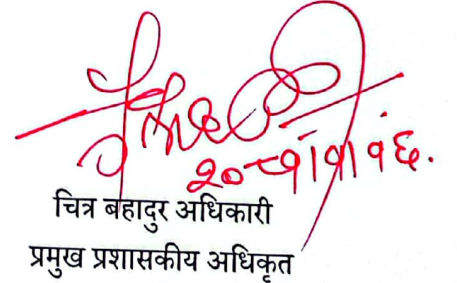 २०८१।१।१६.
चित्र बहादुर अधिकारी
प्रमुख प्रशासकीय अधिकृत